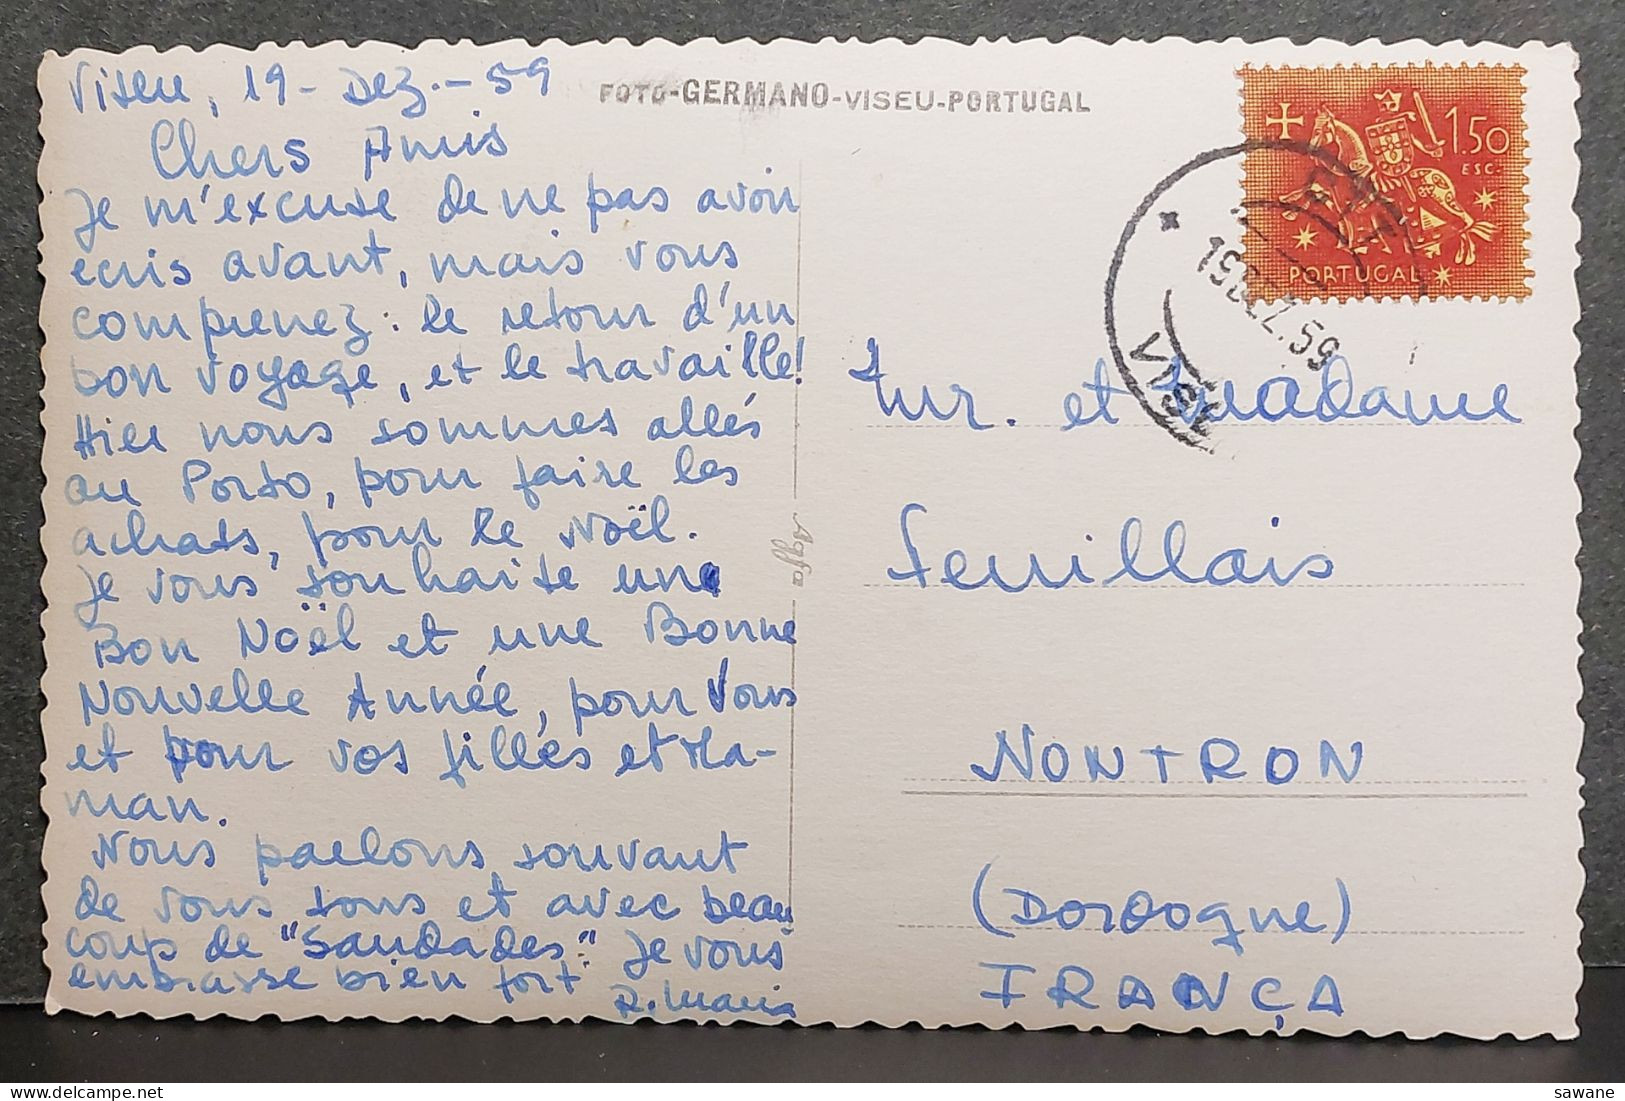 Viseu, 19 - Dez. - 59
Chers Amis
Je m'excuse de ne pas avoir
écris avant, mais vous
comprenez: le retour d'un
bon voyage, et le travaille!
Hier nous sommes allés
au Porto, pour faire les
achats, pour le Noël.
Je vous souhaite une
Bon Noël et une Bonne
Nouvelle Année, pour Vous
et pour vos filles et Ma-
man.
Nous parlons souvant
de vous tous et avec beau
coup de "Saudades". Je vous
embrasse bien fort
R. Maria
FOTO-GERMANO-VISEU-PORTUGAL
Agfa
1.50
ESC.
PORTUGAL
CTT
19 DEZ. 59
VISEU
Mr. et Madame
Feuillais
NONTRON
(Dordogne)
FRANÇA
sawane